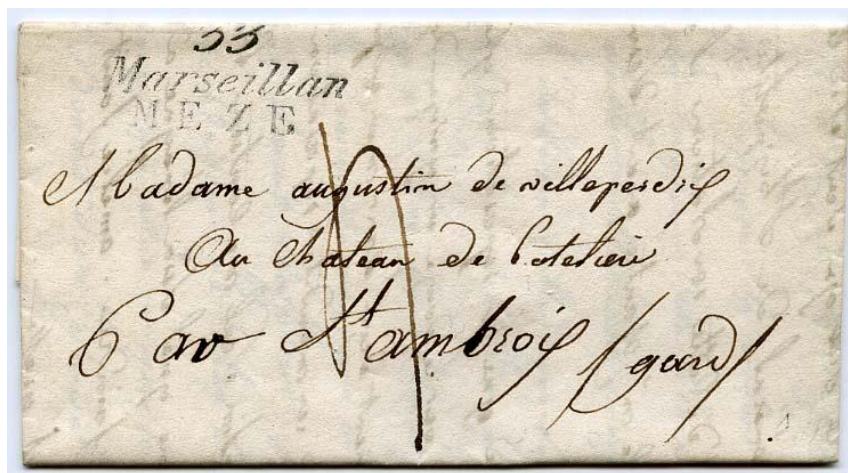 33
Marseillan
MEZE
Madame augustin de villeperdrix
Au chateau de
Par St ambroix (gard)